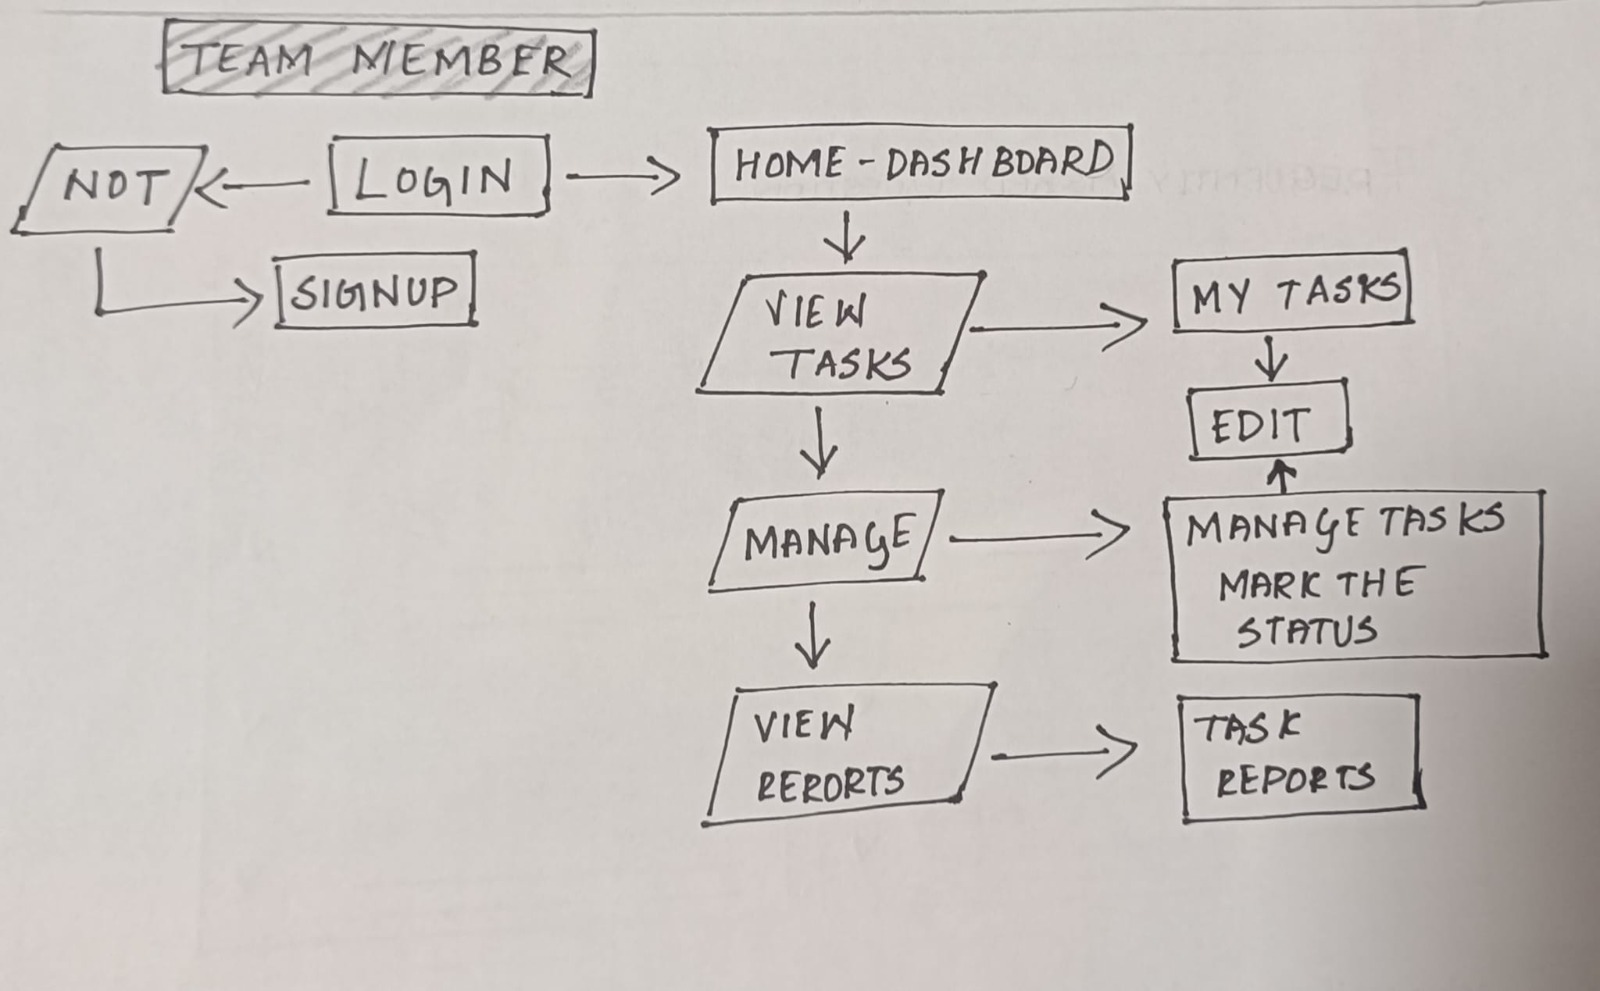 TEAM MEMBER
NOT
LOGIN
HOME - DASHBOARD
SIGNUP
VIEW
TASKS
MY TASKS
EDIT
MANAGE
MANAGE TASKS
MARK THE
STATUS
VIEW
RERORTS
TASK
REPORTS